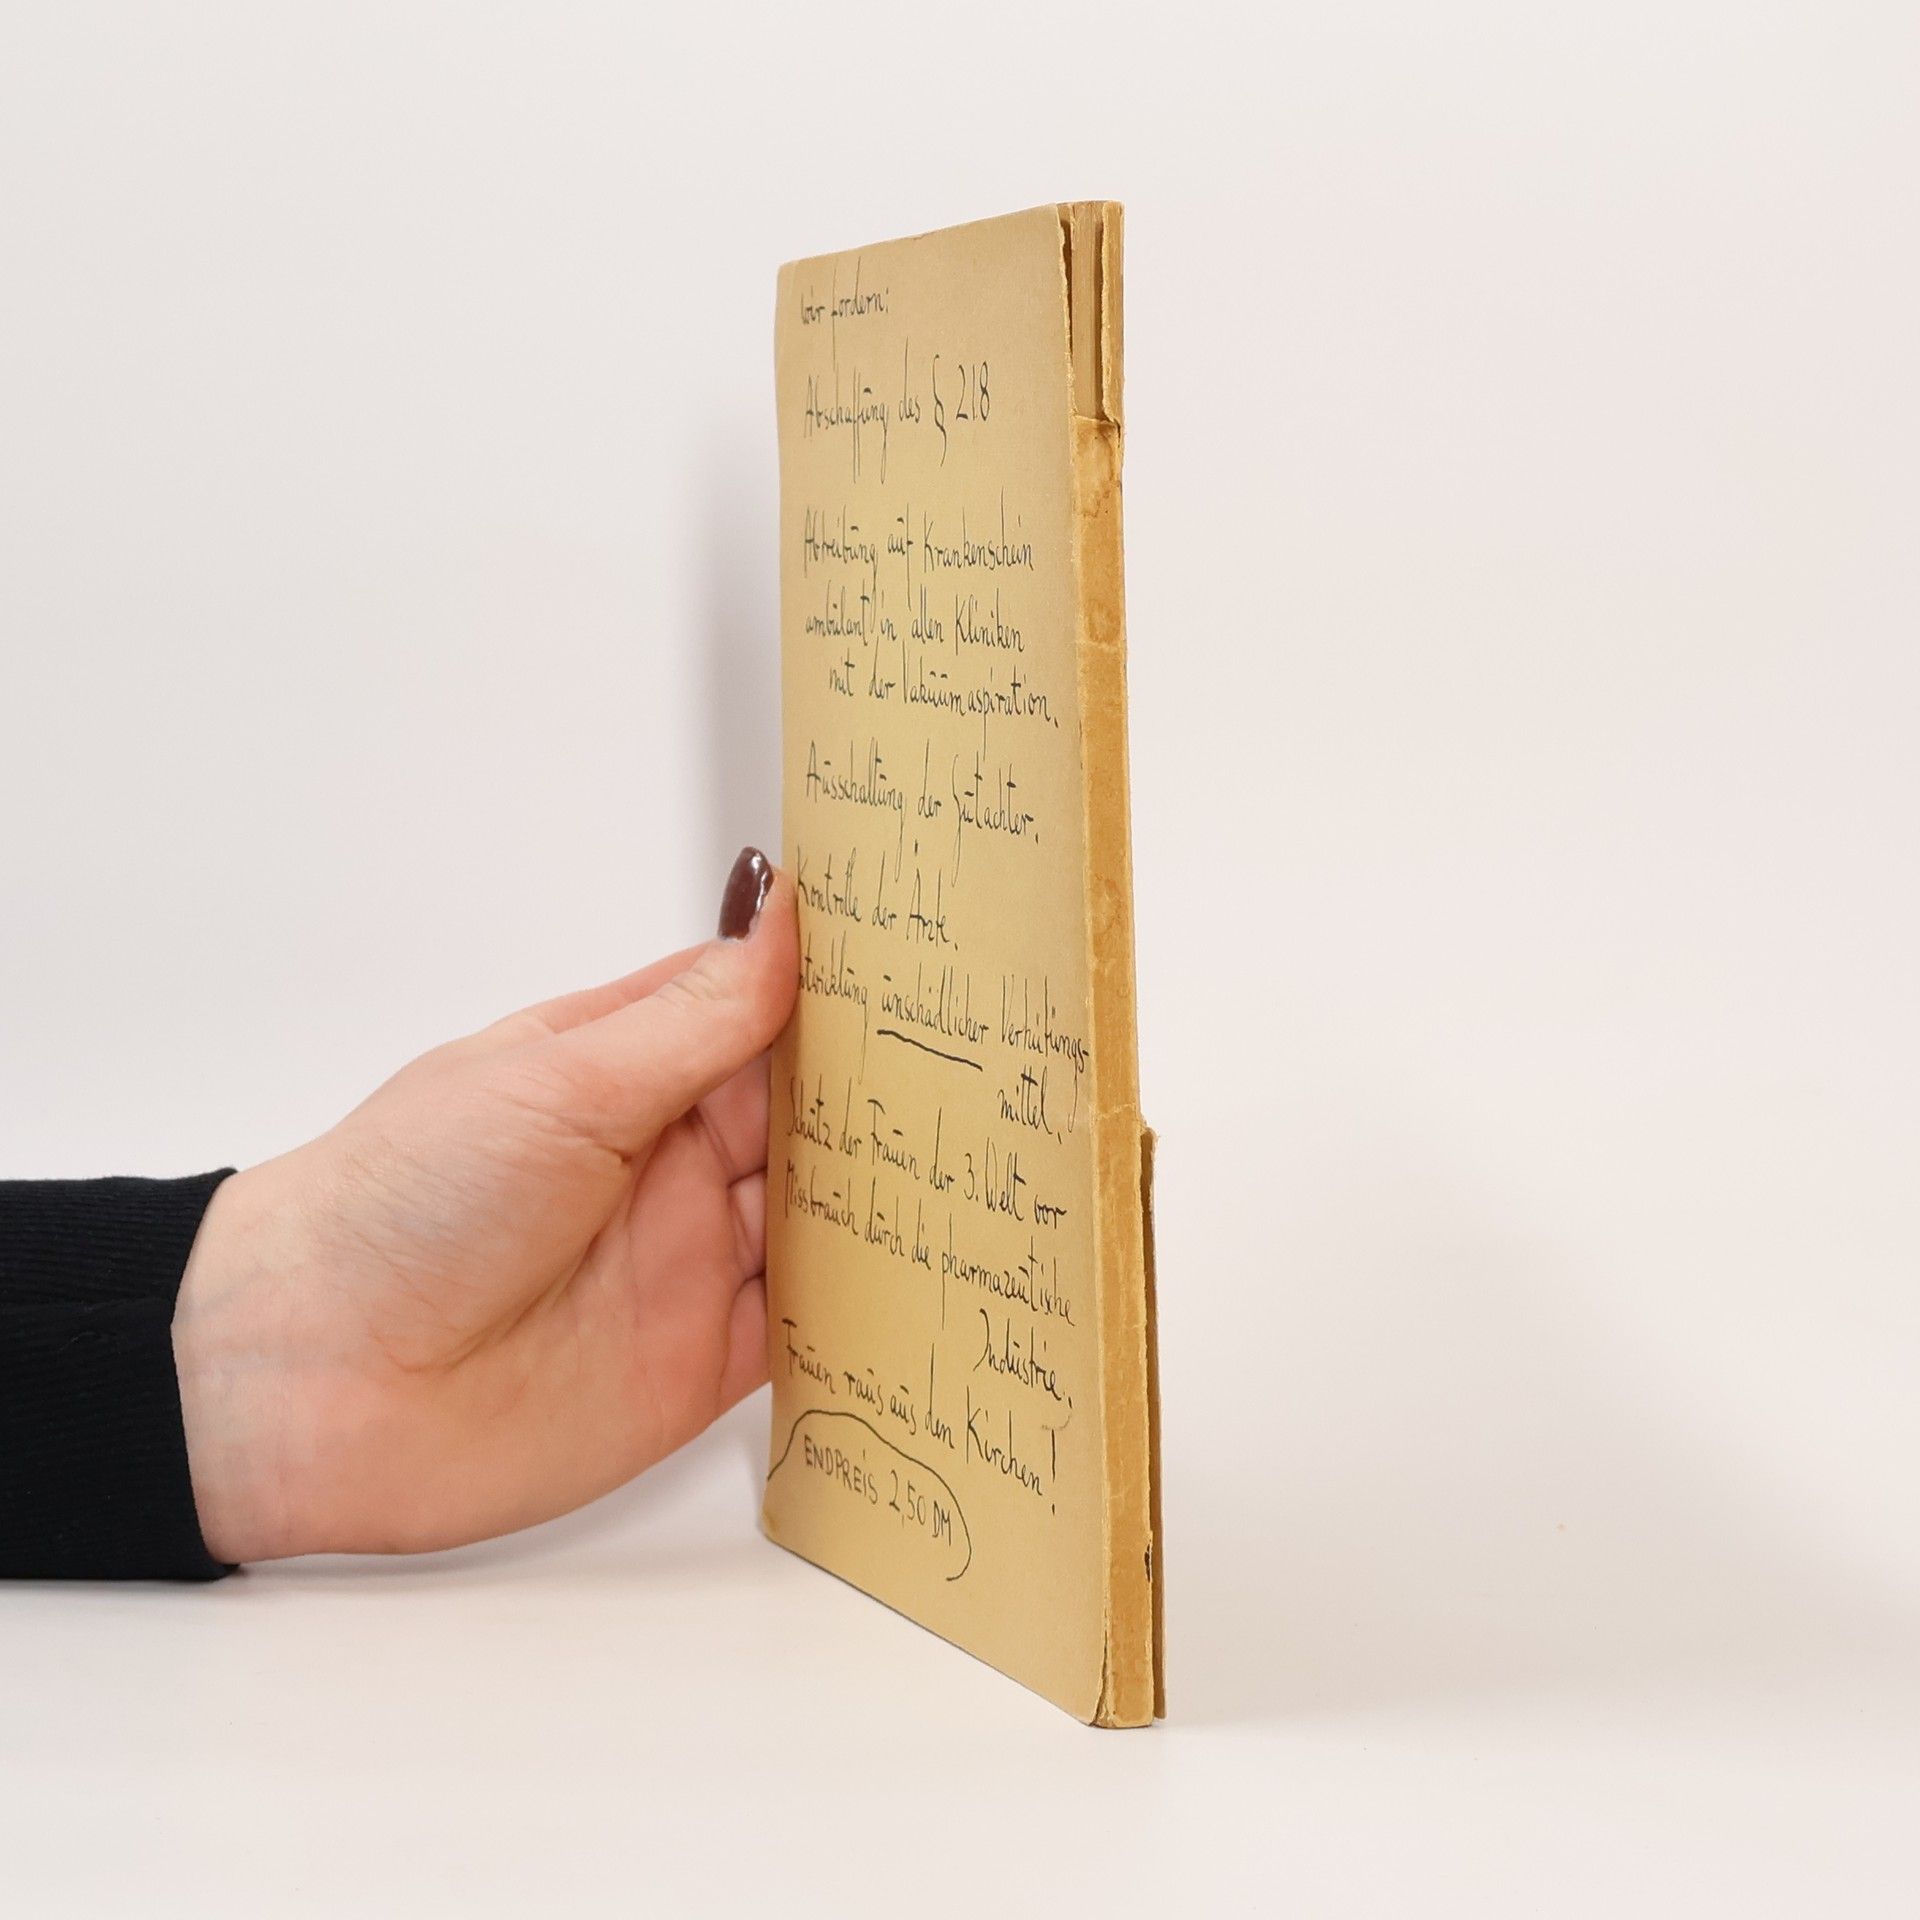 Wir fordern:
Abschaffung des § 218
Abtreibung auf Krankenschein
ambulant in allen Kliniken
mit der Vakuumaspiration.
Ausschaltung der Gutachter.
Kontrolle der Ärzte.
ntwicklung unschädlicher Verhütungs-
mittel.
Schutz der Frauen der 3. Welt vor
Missbrauch durch die pharmazeutische
Industrie.
Frauen raus aus den Kirchen!
ENDPREIS 2,50 DM